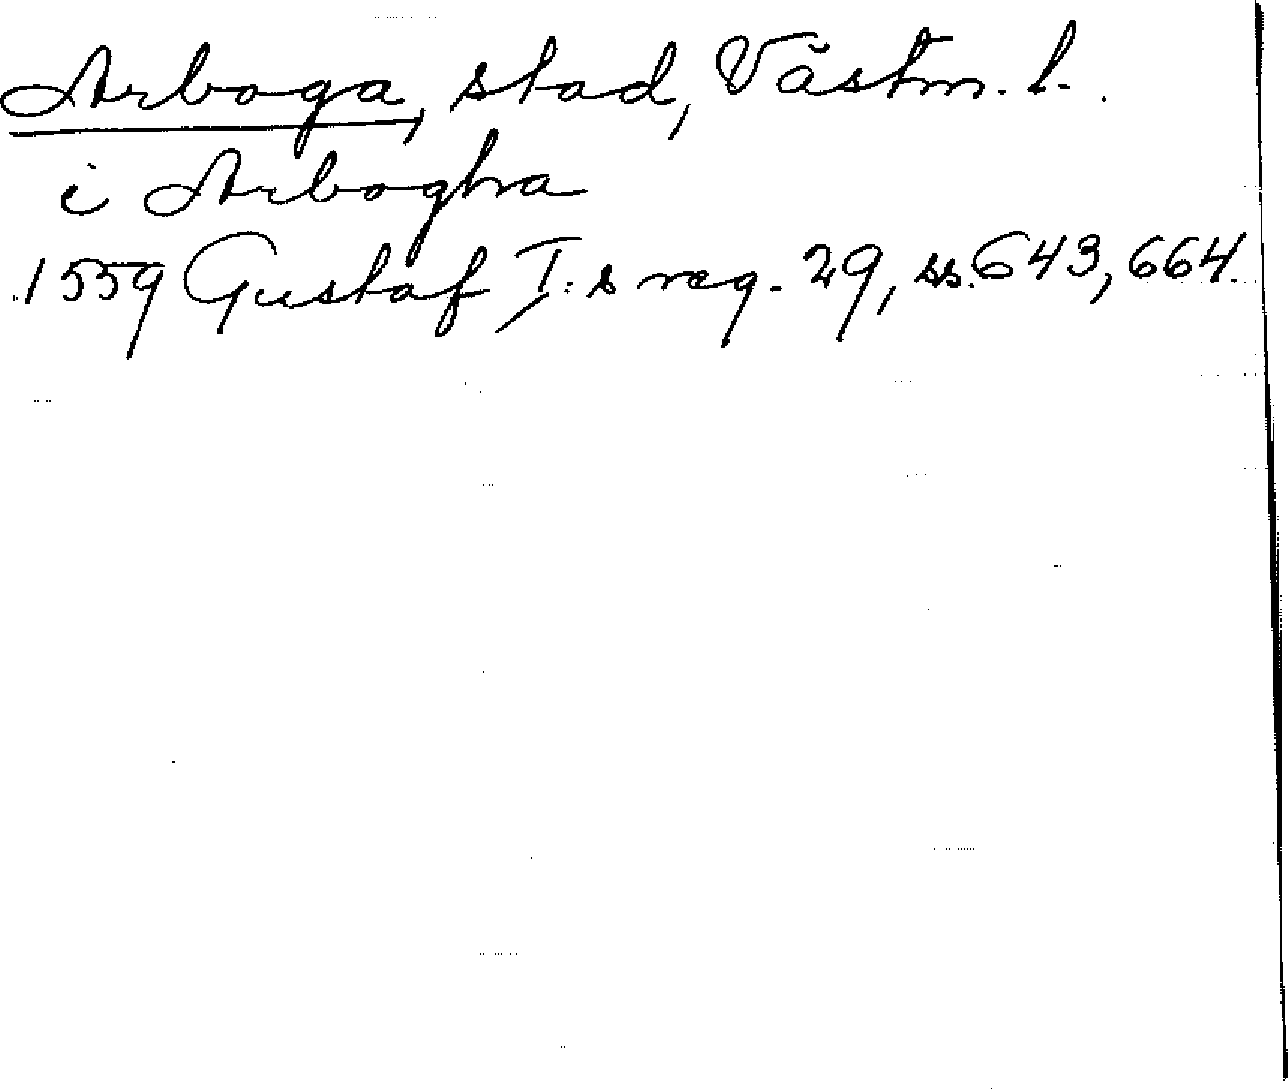 Arboga, stad, Västm. l.
i Arbogha
1559 Gustaf I:s reg. 29, ss. 643, 664.